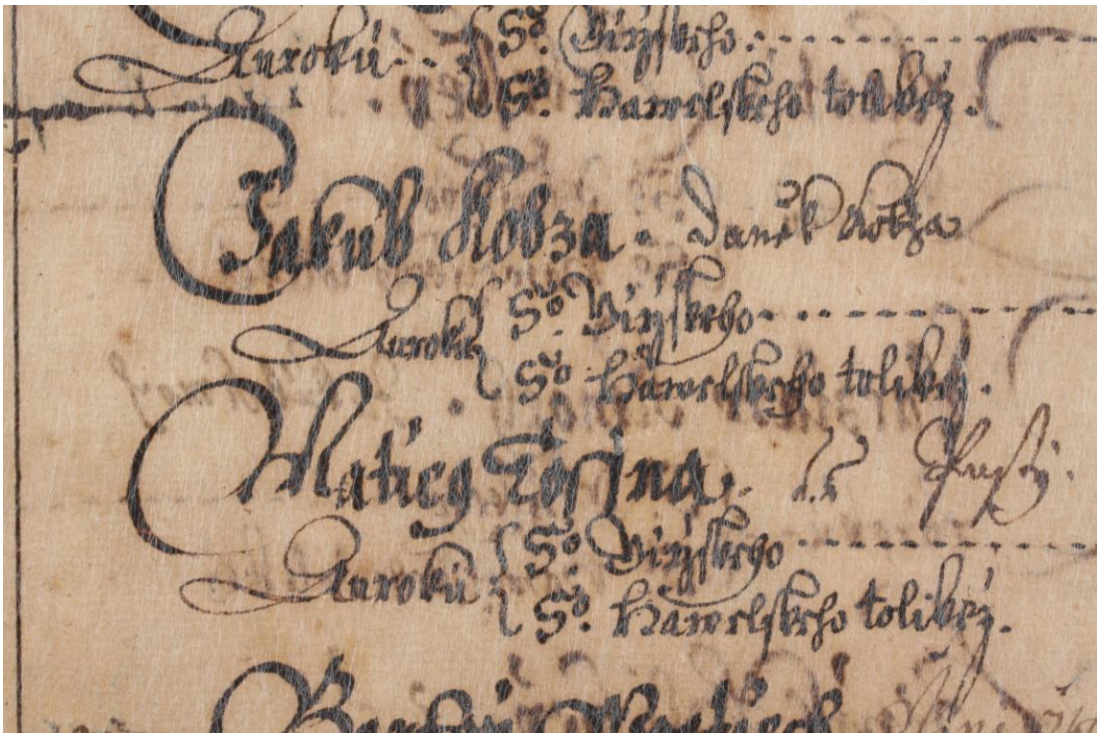 Auroku S° Girzskeho
S° Hawelskeho tolikéz.
Jakub Kobza. Daněk Kobza
Auroku S° Girzskeho
S° Hawelskeho tolikéz.
Matieg. Pustý.
Auroku S° Girzskeho
S° Hawelskeho tolikéz.